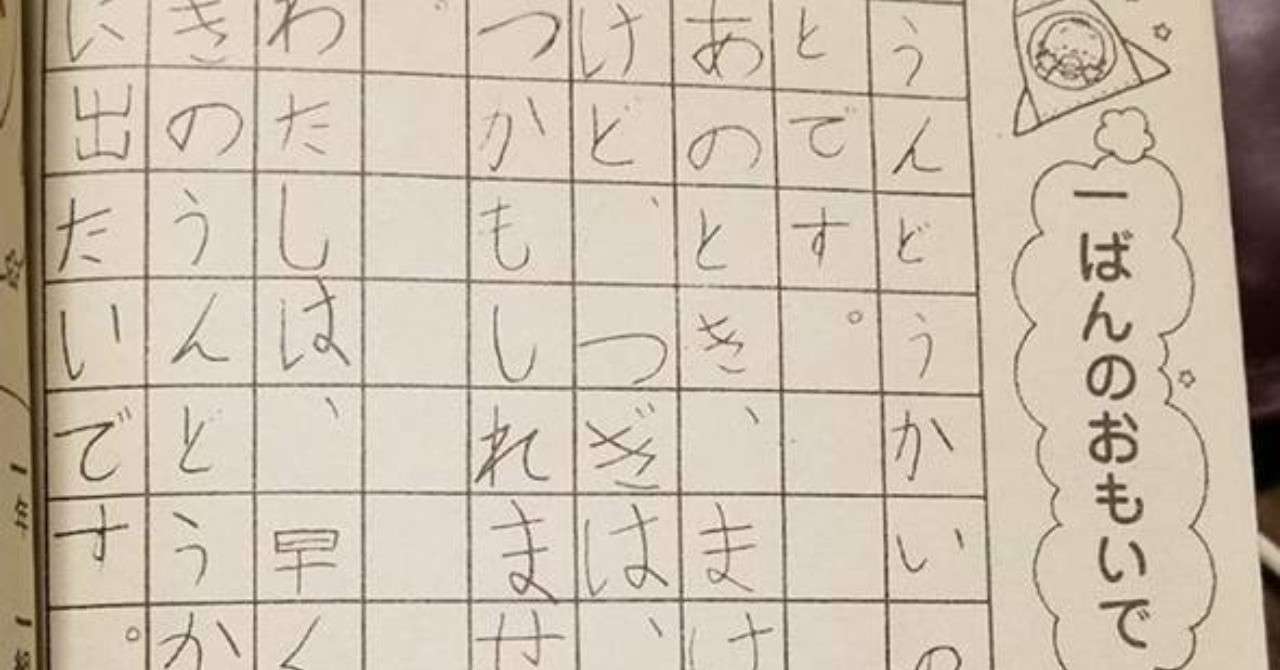 一ばんのおもいで
うんどうかいの
とです。
あのとき、まけ
けど、つぎは、
つかもしれませ
。
わたしは、早く
きのうんどうか
に出たいです。